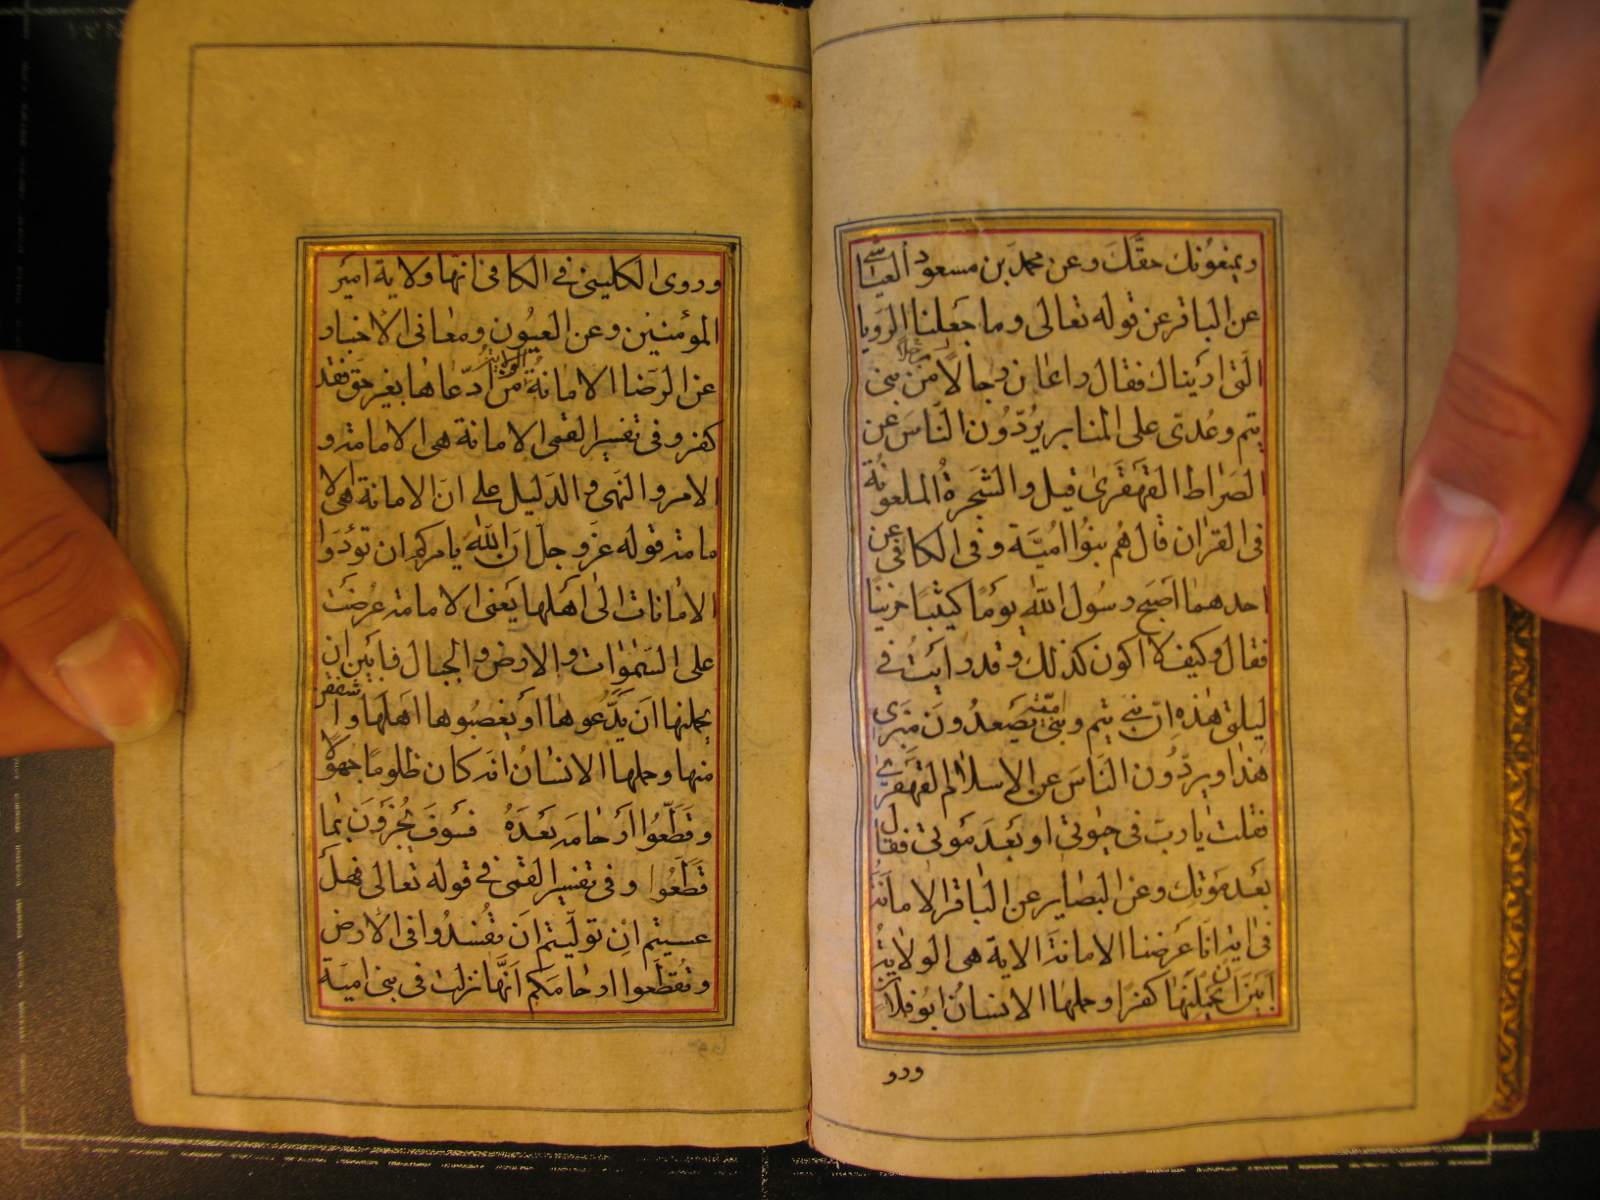 ويمنعونك حقك وعن محمد بن مسعود العياشي
عن الباقر عن قوله تعالى وما جعلنا الرويا
التى اريناك فقال راعان رجالا من بنى
تيم وعدى على المنابر يردون الناس عن
الصراط القهقرى قيل والشجرة الملعونة
فى القران قال هم بنوا امية وفى الكافى عن
احدهما اصبح رسول الله يوما كئيبا حزينا
فقال وكيف لا اكون كذلك وقد رايت فى
ليلتى هذه ان بنى تيم وبنى يصعدون منبرى
هذا ويردون الناس عن الاسلام القهقرى
فقلت يا رب فى حيوتى او بعد موتى فقال
بعد موتك وعن البصاير عن الباقر الامانة
فى اية انا عرضنا الامانة الاية هى الولاية
ابين ان يحملنها كفرا وحملها الانسان ابو فلان
ورو
وروى الكلينى فى الكافى انها ولاية امير
المؤمنين وعن العيون ومعانى الاخبار
عن الرضا الامانة الولاية من ادعاها بغير حق فقد
كفر وفى تفسير القمى الامانة هى الامامة و
الامر والنهى والدليل على ان الامانة هى الا
مامة قوله عز وجل ان الله يامركم ان تؤدوا
الامانات الى اهلها يعنى الامامة عرضت
على السموات والارض والجبال فابين ان
يحملنها ان يدعوها او يغصبوها اهلها واشفقن
منها وحملها الانسان انه كان ظلوما جهولا
وقطعوا ارحامه بعده فسوف يجزون بما
قطعوا وفى تفسير القمى فى قوله تعالى فهل
عسيتم ان توليتم ان تفسدوا فى الارض
وتقطعوا ارحامكم انها نزلت فى بنى امية